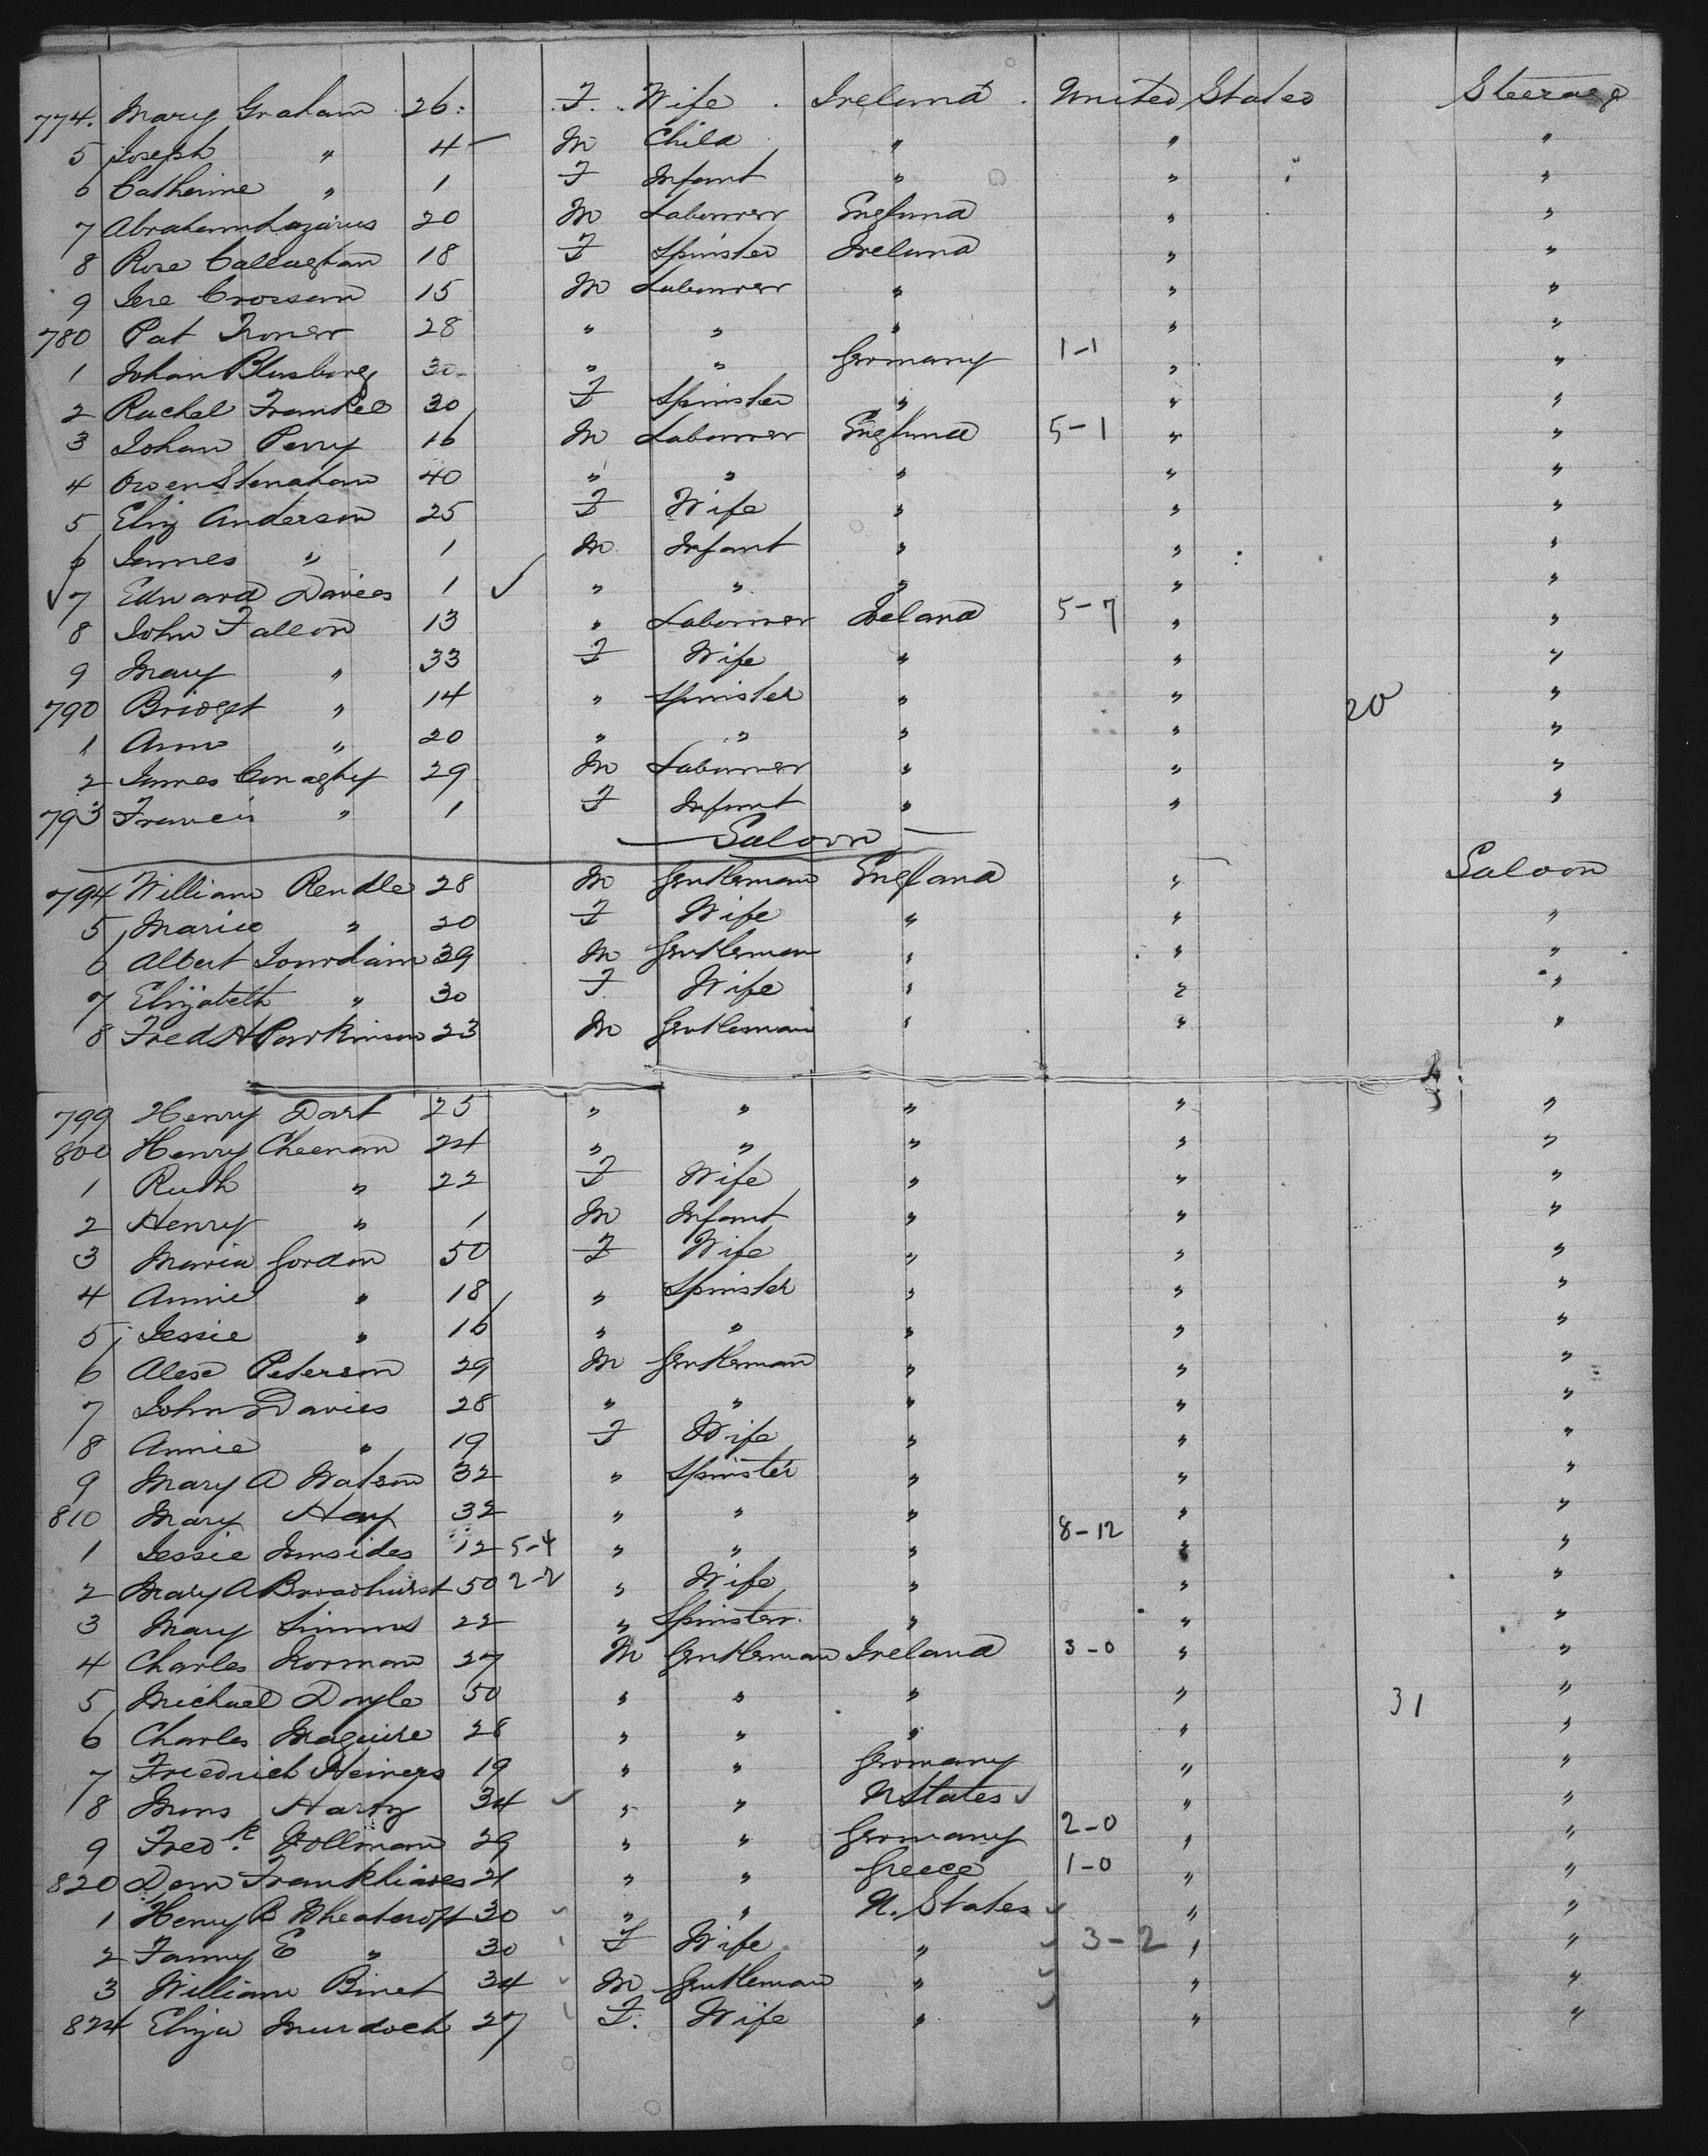 774. Mary Graham 26 F Wife Ireland United States Steerage
5 Joseph " 4 M Child " " "
6 Catherine " 1 F Infant " " "
7 Abraham Lazarus 20 M Labourer England " "
8 Rose Callaghan 18 F Spinster Ireland " "
9 Jere Crossan 15 M Labourer " " "
780 Pat 28 " " " " "
1 Johan 30 " " Germany 1-1 " "
2 Rachel Frankel 30 F Spinster " " "
3 Johan Perry 16 M Labourer England 5-1 " "
4 Owen 40 " " " " "
5 Eliz Anderson 25 F Wife " " "
6 James " 1 M Infant " " "
7 Edward Davies 1 " " " " "
8 John Fallon 13 " Labourer Ireland 5-7 " "
9 Mary " 33 F Wife " " "
790 Bridget " 14 " Spinster " " 20 "
1 Ann " 20 " " " " "
2 James Conaghy 29 M Labourer " " "
793 Francis " 1 F Infant " " "
Saloon
794 William Rendle 28 M Gentleman England " Saloon
5 Marie " 20 F Wife " " "
6 Albert Jourdain 39 M Gentleman " " "
7 Elizabeth " 30 F Wife " " "
8 Fred H Parkinson 23 M Gentleman " " "
799 Henry Dart 25 " " " " "
800 Henry Cheenan 24 " " " " "
1 Ruth " 22 F Wife " " "
2 Henry " 1 M Infant " " "
3 Maria Gordon 50 F Wife " " "
4 Annie " 18 " Spinster " " "
5 Jessie " 16 " " " " "
6 Alexr Peterson 29 M Gentleman " " "
7 John Davies 28 " " " " "
8 Annie " 19 F Wife " " "
9 Mary A Watson 32 " Spinster " " "
810 Mary Hay 32 " " " " "
1 Jessie Ironsides 12 5-4 " " " 8-12 " "
2 Mary A Broadhurst 50 2-2 " Wife " " "
3 Mary Simms 22 " Spinster " " "
4 Charles Korman 27 M Gentleman Ireland 3-0 " "
5 Michael Doyle 50 " " " " 31 "
6 Charles Maguire 28 " " " " "
7 Friedrich Heiners 19 " " Germany " "
8 Mons Hartz 34 " " U States " "
9 Fredk. Hollman 29 " " Germany 2-0 " "
820 Dem 21 " " Greece 1-0 " "
1 Henry B Wheatcroft 30 " " U. States " "
2 Fanny E " 30 F Wife " 3-2 " "
3 William Binet 34 M Gentleman " " "
824 Eliza Murdoch 27 F. Wife " " "